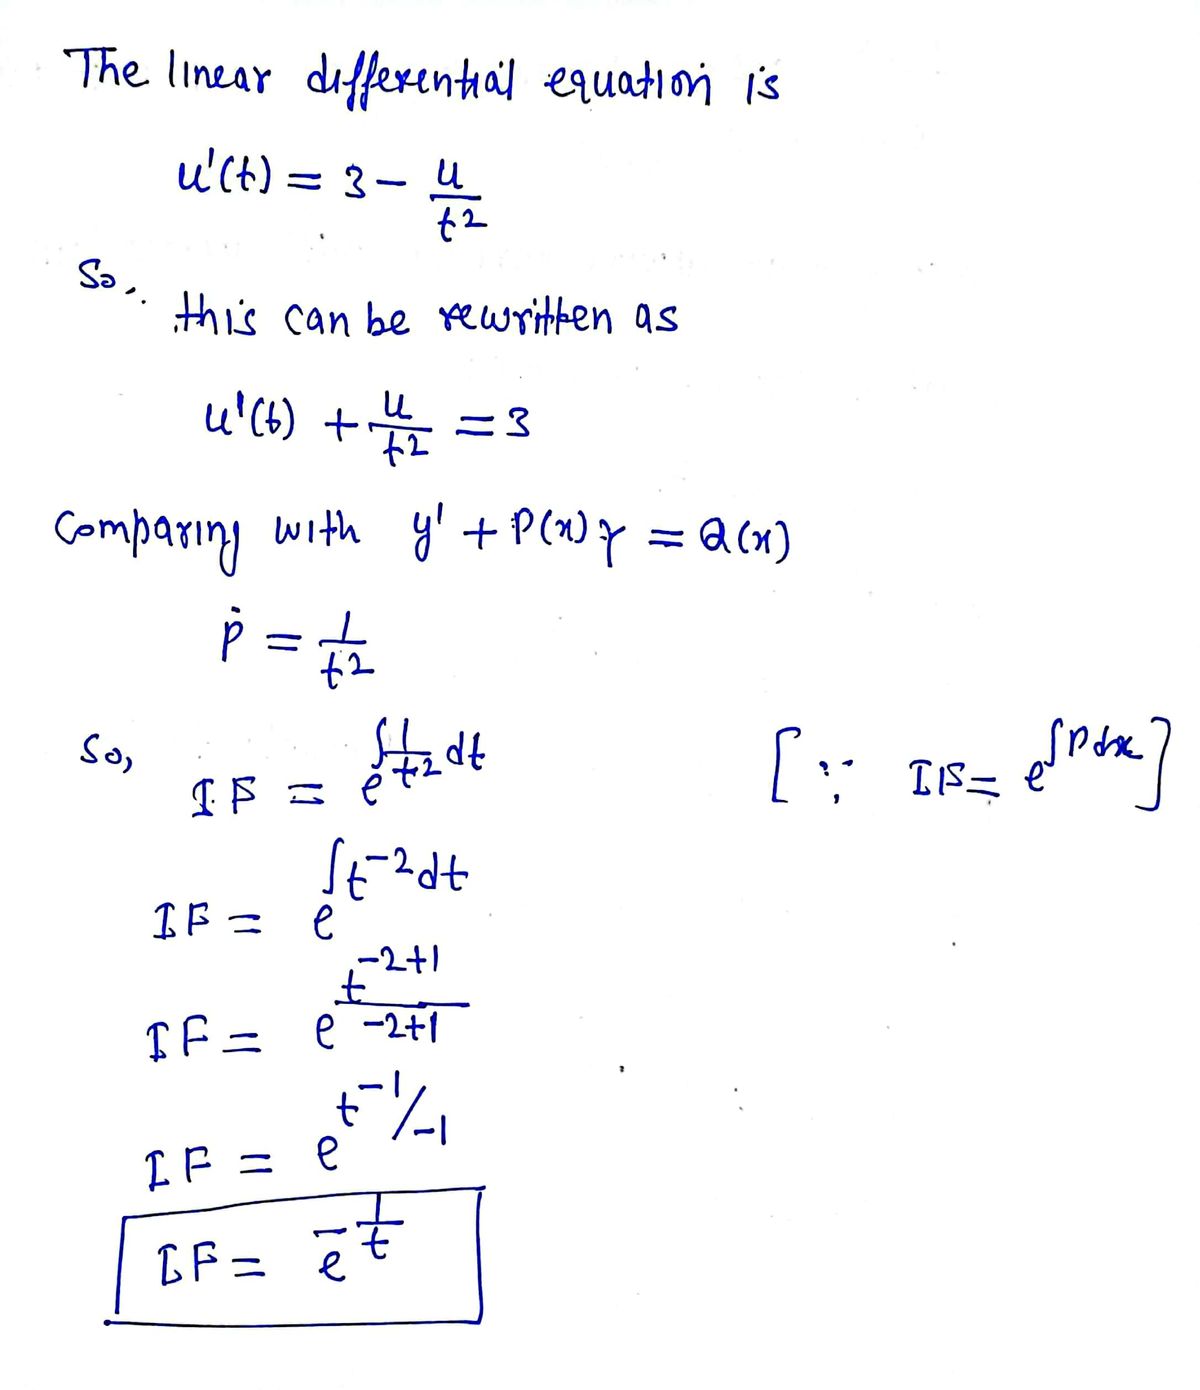 The linear differential equation is
u'(t) = 3 - u/t²
So,
this can be rewritten as
u'(t) + u/t² = 3
Comparing with y' + P(x) y = Q(x)
P = 1/t²
So, IF = e^∫1/t² dt [∵ IF = e^∫P dx]
IF = e^∫t⁻² dt
IF = e^(t^(-2+1)/(-2+1))
IF = e^(t⁻¹/-1)
IF = e^(-1/t)